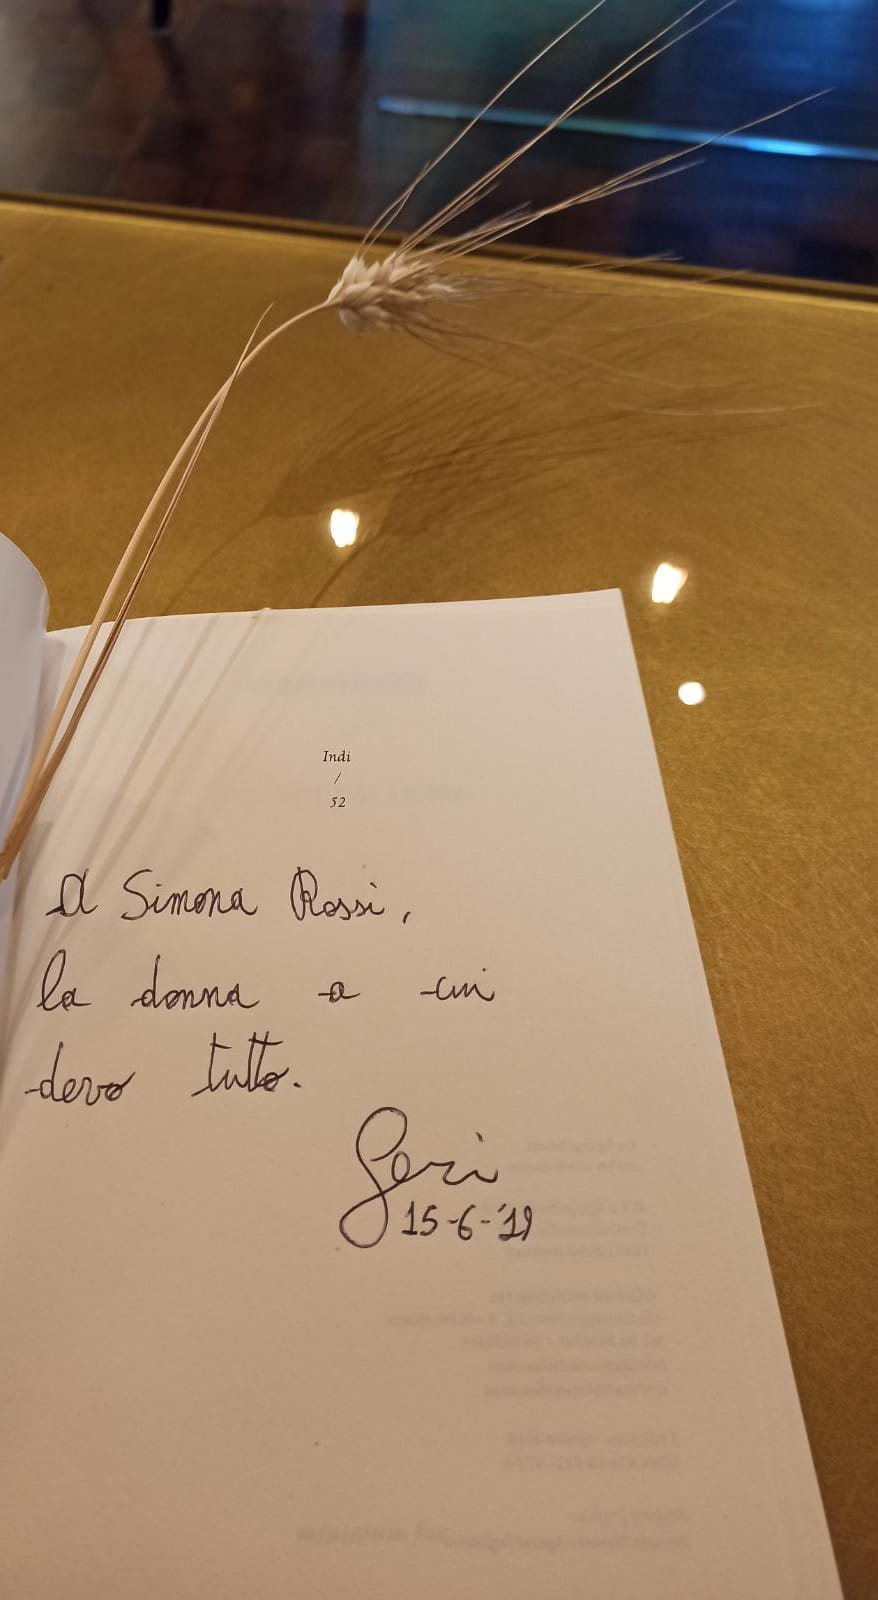 Indi
/
52
A Simona Rossi,
la donna a cui
devo tutto.
Geri
15-6-'19